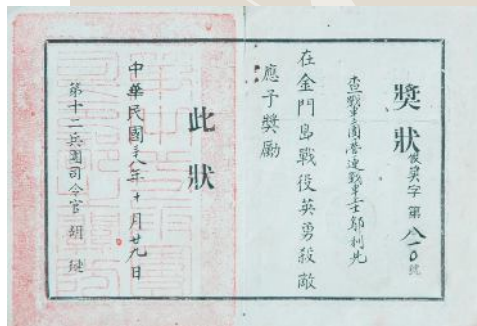 獎狀 俊獎字第八一〇號
查戰車三團營連戰車士鄔利先
在金門島戰役英勇殺敵
應予獎勵
此狀
中華民國卅八年十月廿九日
第十二兵團司令官 胡璉